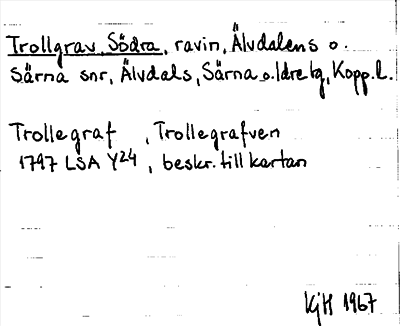 Trollgrav, Södra, ravin, Älvdalens o.
Särna snr, Älvdals, Särna o. Idre tg, Kopp. l.
Trollegraf , Trollegrafven
1797 LSA Y24, beskr. till kartan
KjH 1967